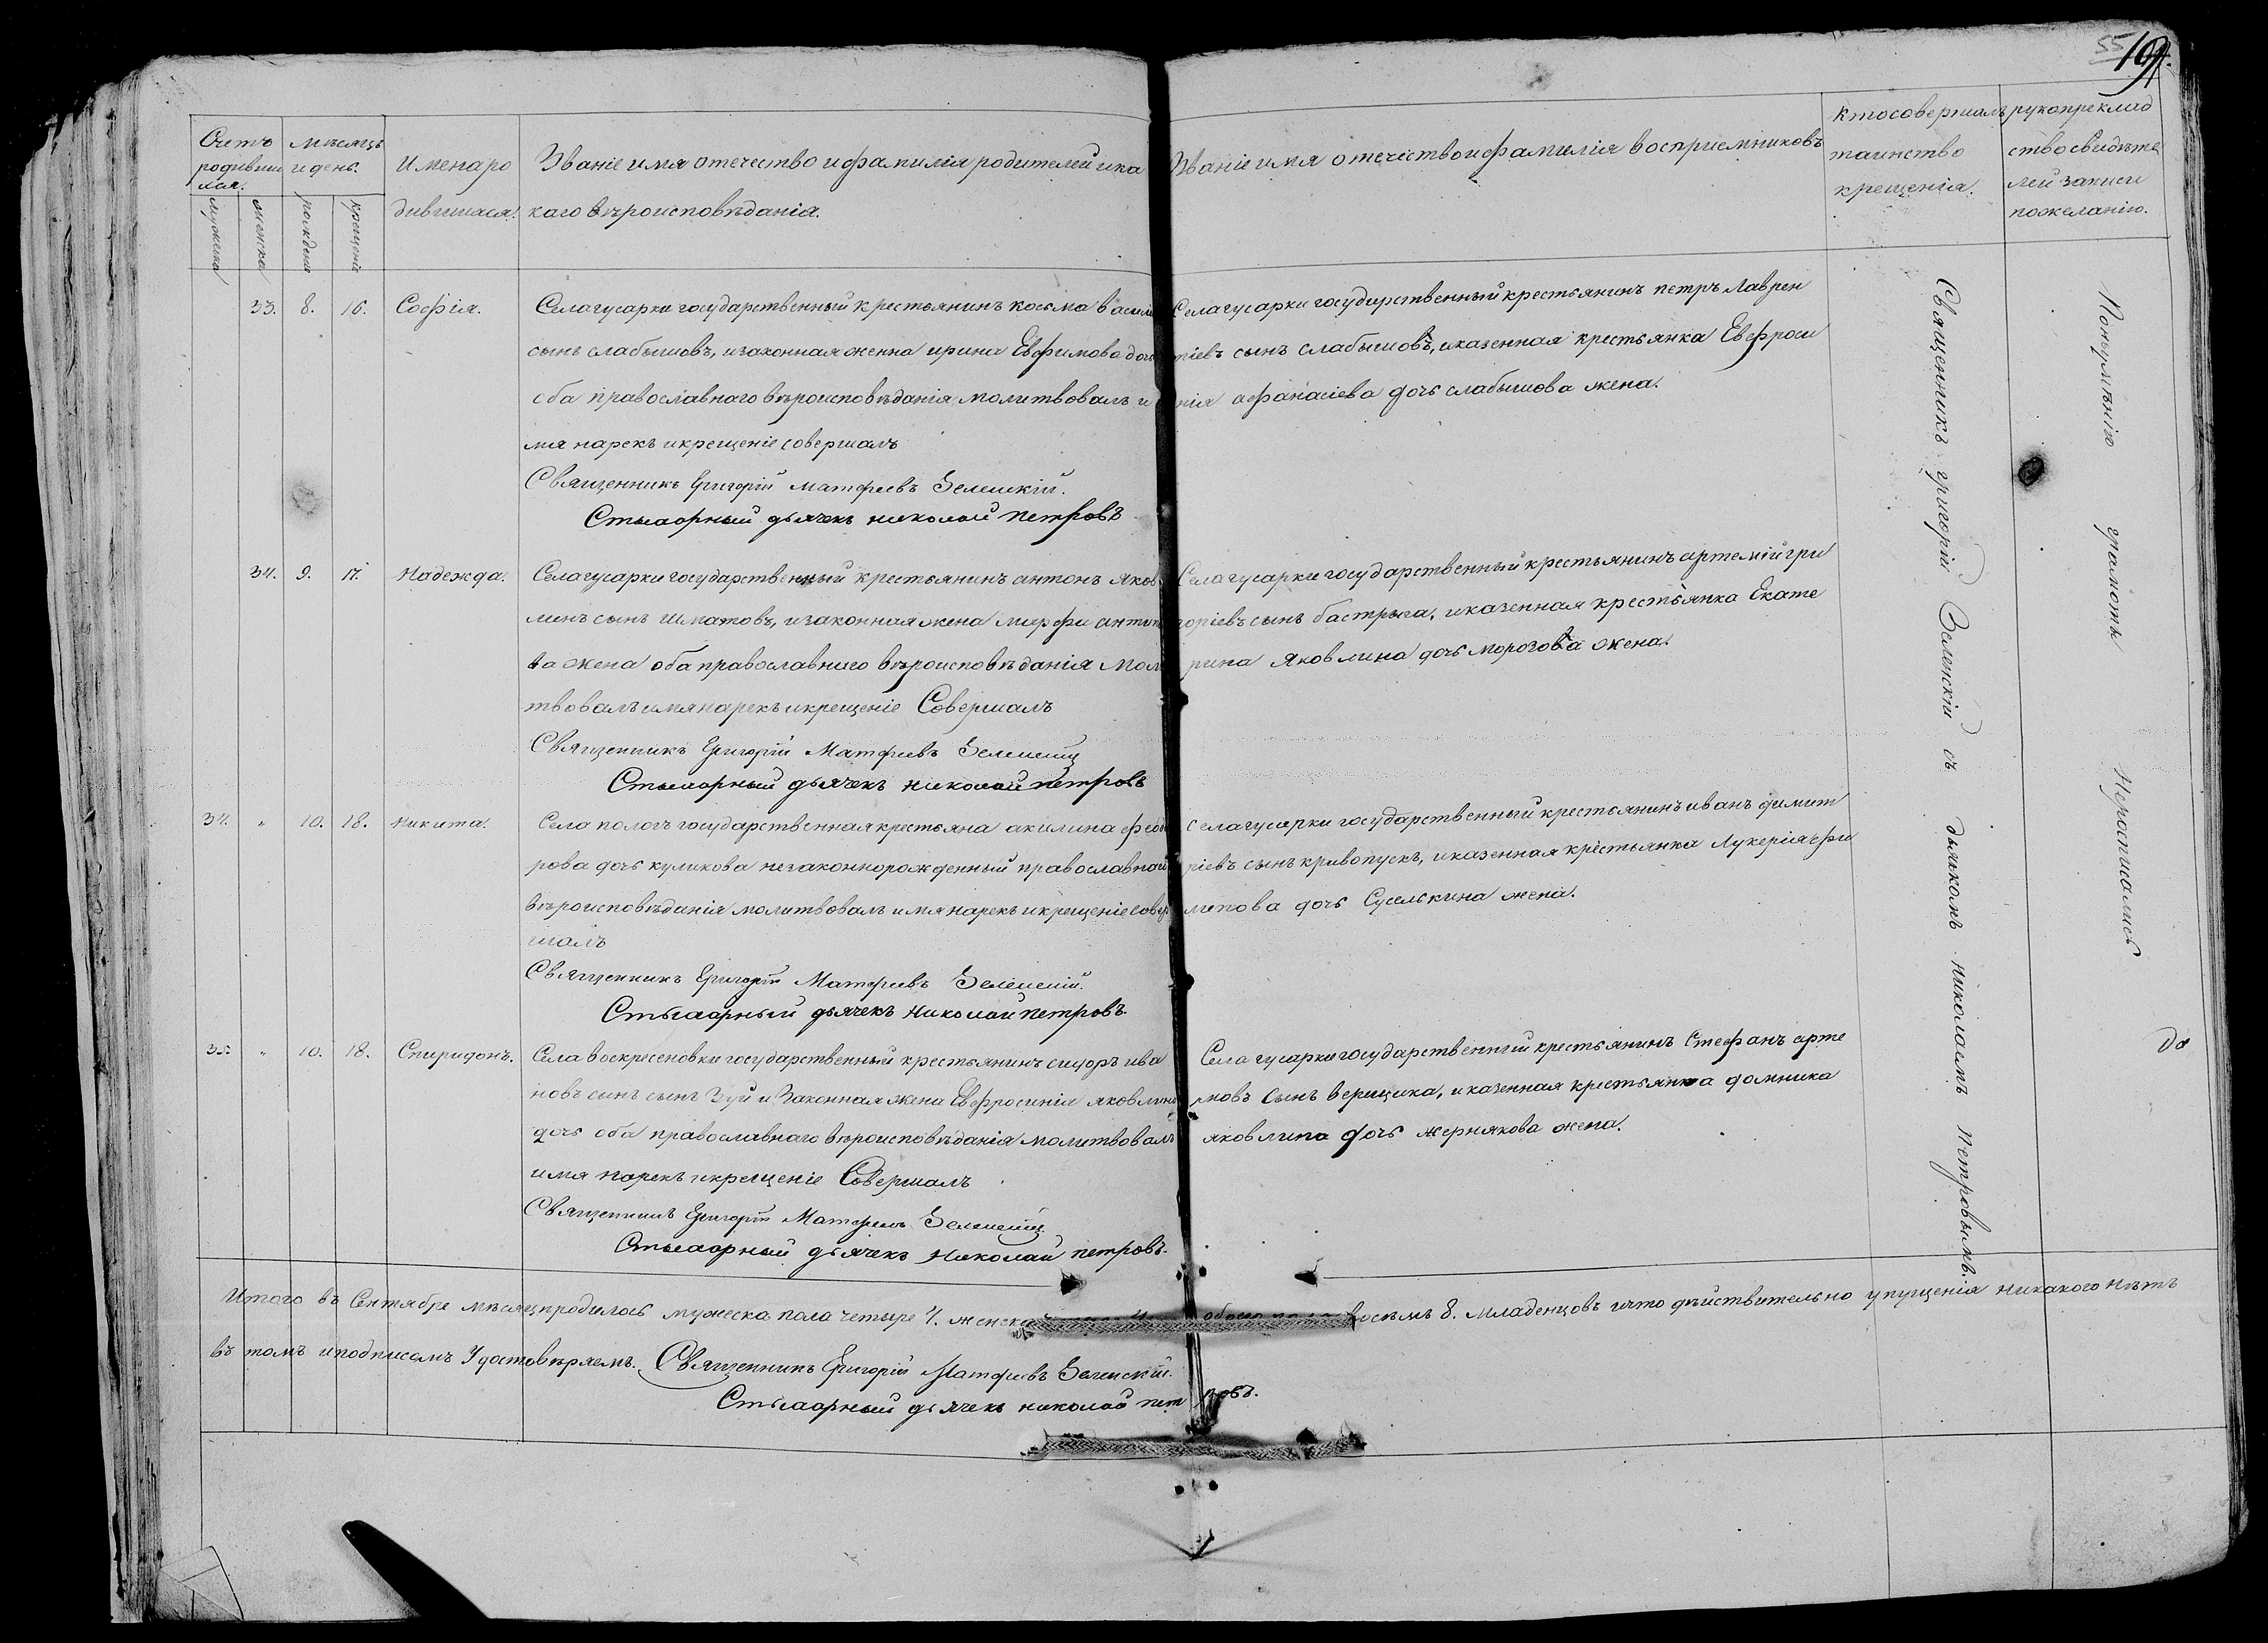 55
191.
Счетъ
родивши
хся.
мужеска
женска
мѣсяцъ
и день.
рожденія
крещенія
Имена ро
дившихся.
Званіе имя отечество и фамилія родителей и ка
каго вѣроисповѣданія.
Званіе имя отечество и фамилія воспріемниковъ
кто совершалъ
таинство
крещенія.
рукоприклад
ство свидѣте
лей записи
по желанію.
33. 8. 16. Софія.
Села гусарки государственный крестьянинъ косьма васили
сынъ слабышовъ, и законная женна ирина Евфимова доч
оба православнаго вѣроисповѣданія молитвовалъ и
мя нарекъ и крещеніе совершалъ
Священникъ Григорій Матфеевъ Зеленскій.
Стихарный дьячекъ николай петровъ
Села гусарки государственный крестьянинъ петръ Лаврен
тіевъ сынъ слабышовъ, и казенная крестьянка Евфроси
нія афанасіева дочь слабышова жена.
34. 9. 17. Надежда.
Села гусарки государственный крестьянинъ антонъ яков
линъ сынъ Шматовъ, и законная жена марфа антон
ва жена оба православнаго вѣроисповѣданія Мол
твовалъ имя нарекъ и крещеніе Совершалъ
Священникъ Григорій Матфеевъ Зеленскій
Стихарный дьячекъ николай петровъ
Села гусарки государственный крестьянинъ артемій гри
горіевъ сынъ бастрыга, и казенная крестьянка Екате
рина яковлина дочь морогова жена.
34. " 10. 18. Никита.
Села пологъ государственная крестьяна акилина феод
рова дочь куликова незаконнорожденный православной
вѣроисповѣданія молитвовалъ имя нарекъ и крещеніе совер
шалъ
Священникъ Григорій Матфеевъ Зеленскій.
Стихарный дьячекъ николай петровъ.
Села гусарки государственный крестьянинъ иванъ димит
ріевъ сынъ кривопускъ, и казенная крестьянка Лукерія фи
липова дочь Суселькина жена.
35. " 10. 18. Спиридонъ.
Села воскресеновки государственный крестьянинъ сидоръ ива
новъ сынъ сынъ Зуй и Законная жена Евфросинія яковлина
дочь оба православнаго вѣроисповѣданія молитвовалъ
имя нарекъ и крещеніе Совершалъ
Священникъ Григорій Матфеевъ Зеленскій.
Стихарный дьячекъ Николай петровъ.
Села гусарки государственный крестьянинъ Стефанъ арте
мовъ сынъ верещика, и казенная крестьянка домника
яковлина дочь жернякова жена.
Священникъ григорій Зеленскій съ дьякомъ николаемъ Петровымъ.
По неумѣнію грамотѣ Неросписались
До
Итого въ Сентябре мѣсяц родилось мужеска пола четыре 4. женска обоего пола восьмъ 8. младенцовъ и что дѣйствительно упущенія никакого нѣтъ
въ томъ и подписомъ Удостовѣряемъ. Священникъ Григорій Матфеевъ Зеленскій.
Стихарный дьячекъ николай петровъ.